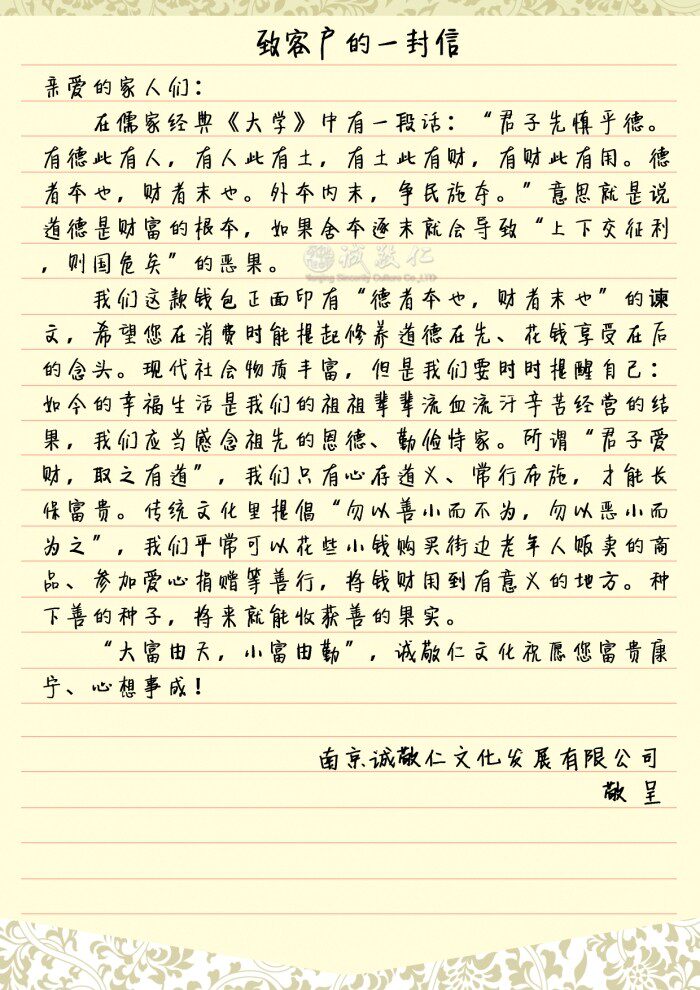 致客户的一封信
亲爱的家人们：
在儒家经典《大学》中有一段话：“君子先慎乎德。
有德此有人，有人此有土，有土此有财，有财此有用。德
者本也，财者末也。外本内末，争民施夺。”意思就是说
道德是财富的根本，如果舍本逐末就会导致“上下交征利
，则国危矣”的恶果。
诚敬仁
Nanjing Sincerity Culture Co.,LTD
我们这款钱包正面印有“德者本也，财者末也”的谏
文，希望您在消费时能提起修养道德在先、花钱享受在后
的念头。现代社会物质丰富，但是我们要时时提醒自己：
如今的幸福生活是我们的祖祖辈辈流血流汗辛苦经营的结
果，我们应当感念祖先的恩德、勤俭持家。所谓“君子爱
财，取之有道”，我们只有心存道义、常行布施，才能长
保富贵。传统文化里提倡“勿以善小而不为，勿以恶小而
为之”，我们平常可以花些小钱购买街边老年人贩卖的商
品、参加爱心捐赠等善行，将钱财用到有意义的地方。种
下善的种子，将来就能收获善的果实。
“大富由天，小富由勤”，诚敬仁文化祝愿您富贵康
宁、心想事成！
南京诚敬仁文化发展有限公司
敬呈